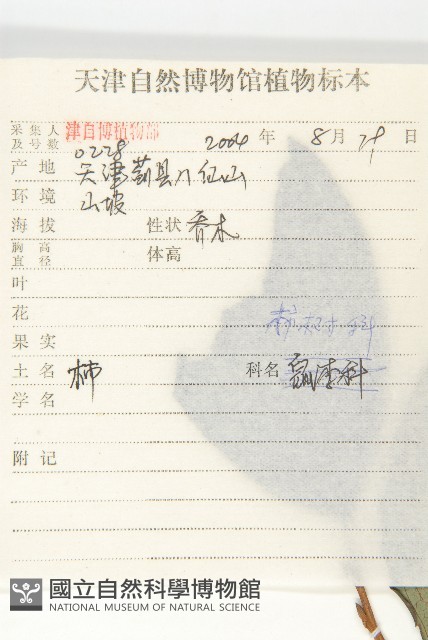 天津自然博物馆植物标本
采集人及号数 津自博植物部 0228 2004年8月 日
产地 天津蓟县八仙山
环境 山坡
海拔 性状 乔木
胸高直径 体高
叶
花
柿树科
果实
土名 柿 科名
学名
附记
國立自然科學博物館
NATIONAL MUSEUM OF NATURAL SCIENCE